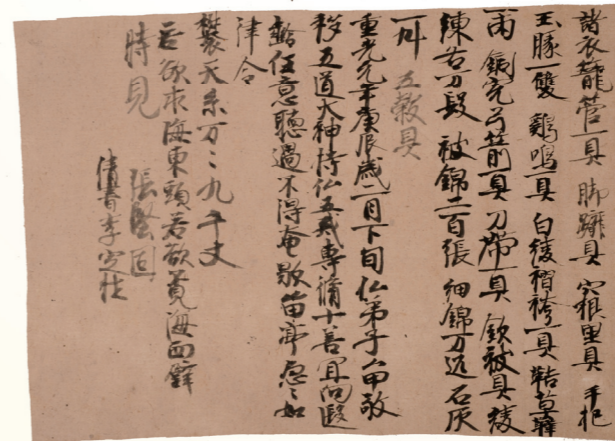 諸衣籠管一具 脚躡具 穴根里具 手把
玉豚一雙 鷄鳴一具 白綾褶袴一具 靴
一兩 銀完弓箭一具 刀帶一具 欽被具 綾
練各万段 被錦二百張 細錦万 石灰
一斛 五穀具
重光元年庚辰歲二月下旬仏弟子 敬
移五道大神持仏五戒專脩十善宜向遐
齡任意聽過不得奄歇留亭急々如
律令
攀天系万々九千丈
若欲求海東頭若欲覓海西辟
時見 張堅固
倩書李定杜